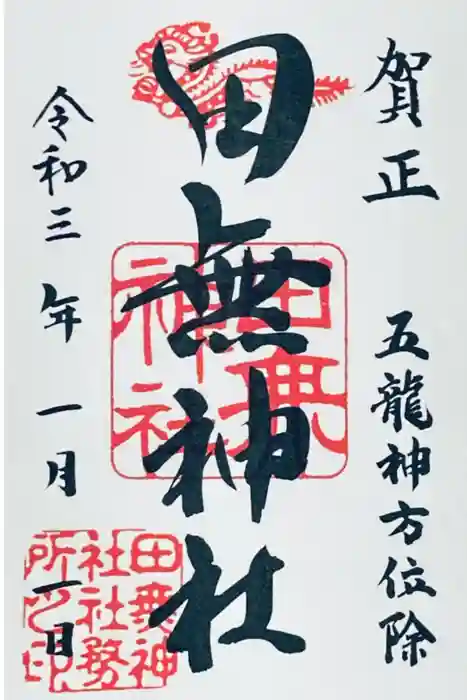 賀正 五龍神方位除
田無神社
令和三年一月一日
田無神社
田無神社社務所之印